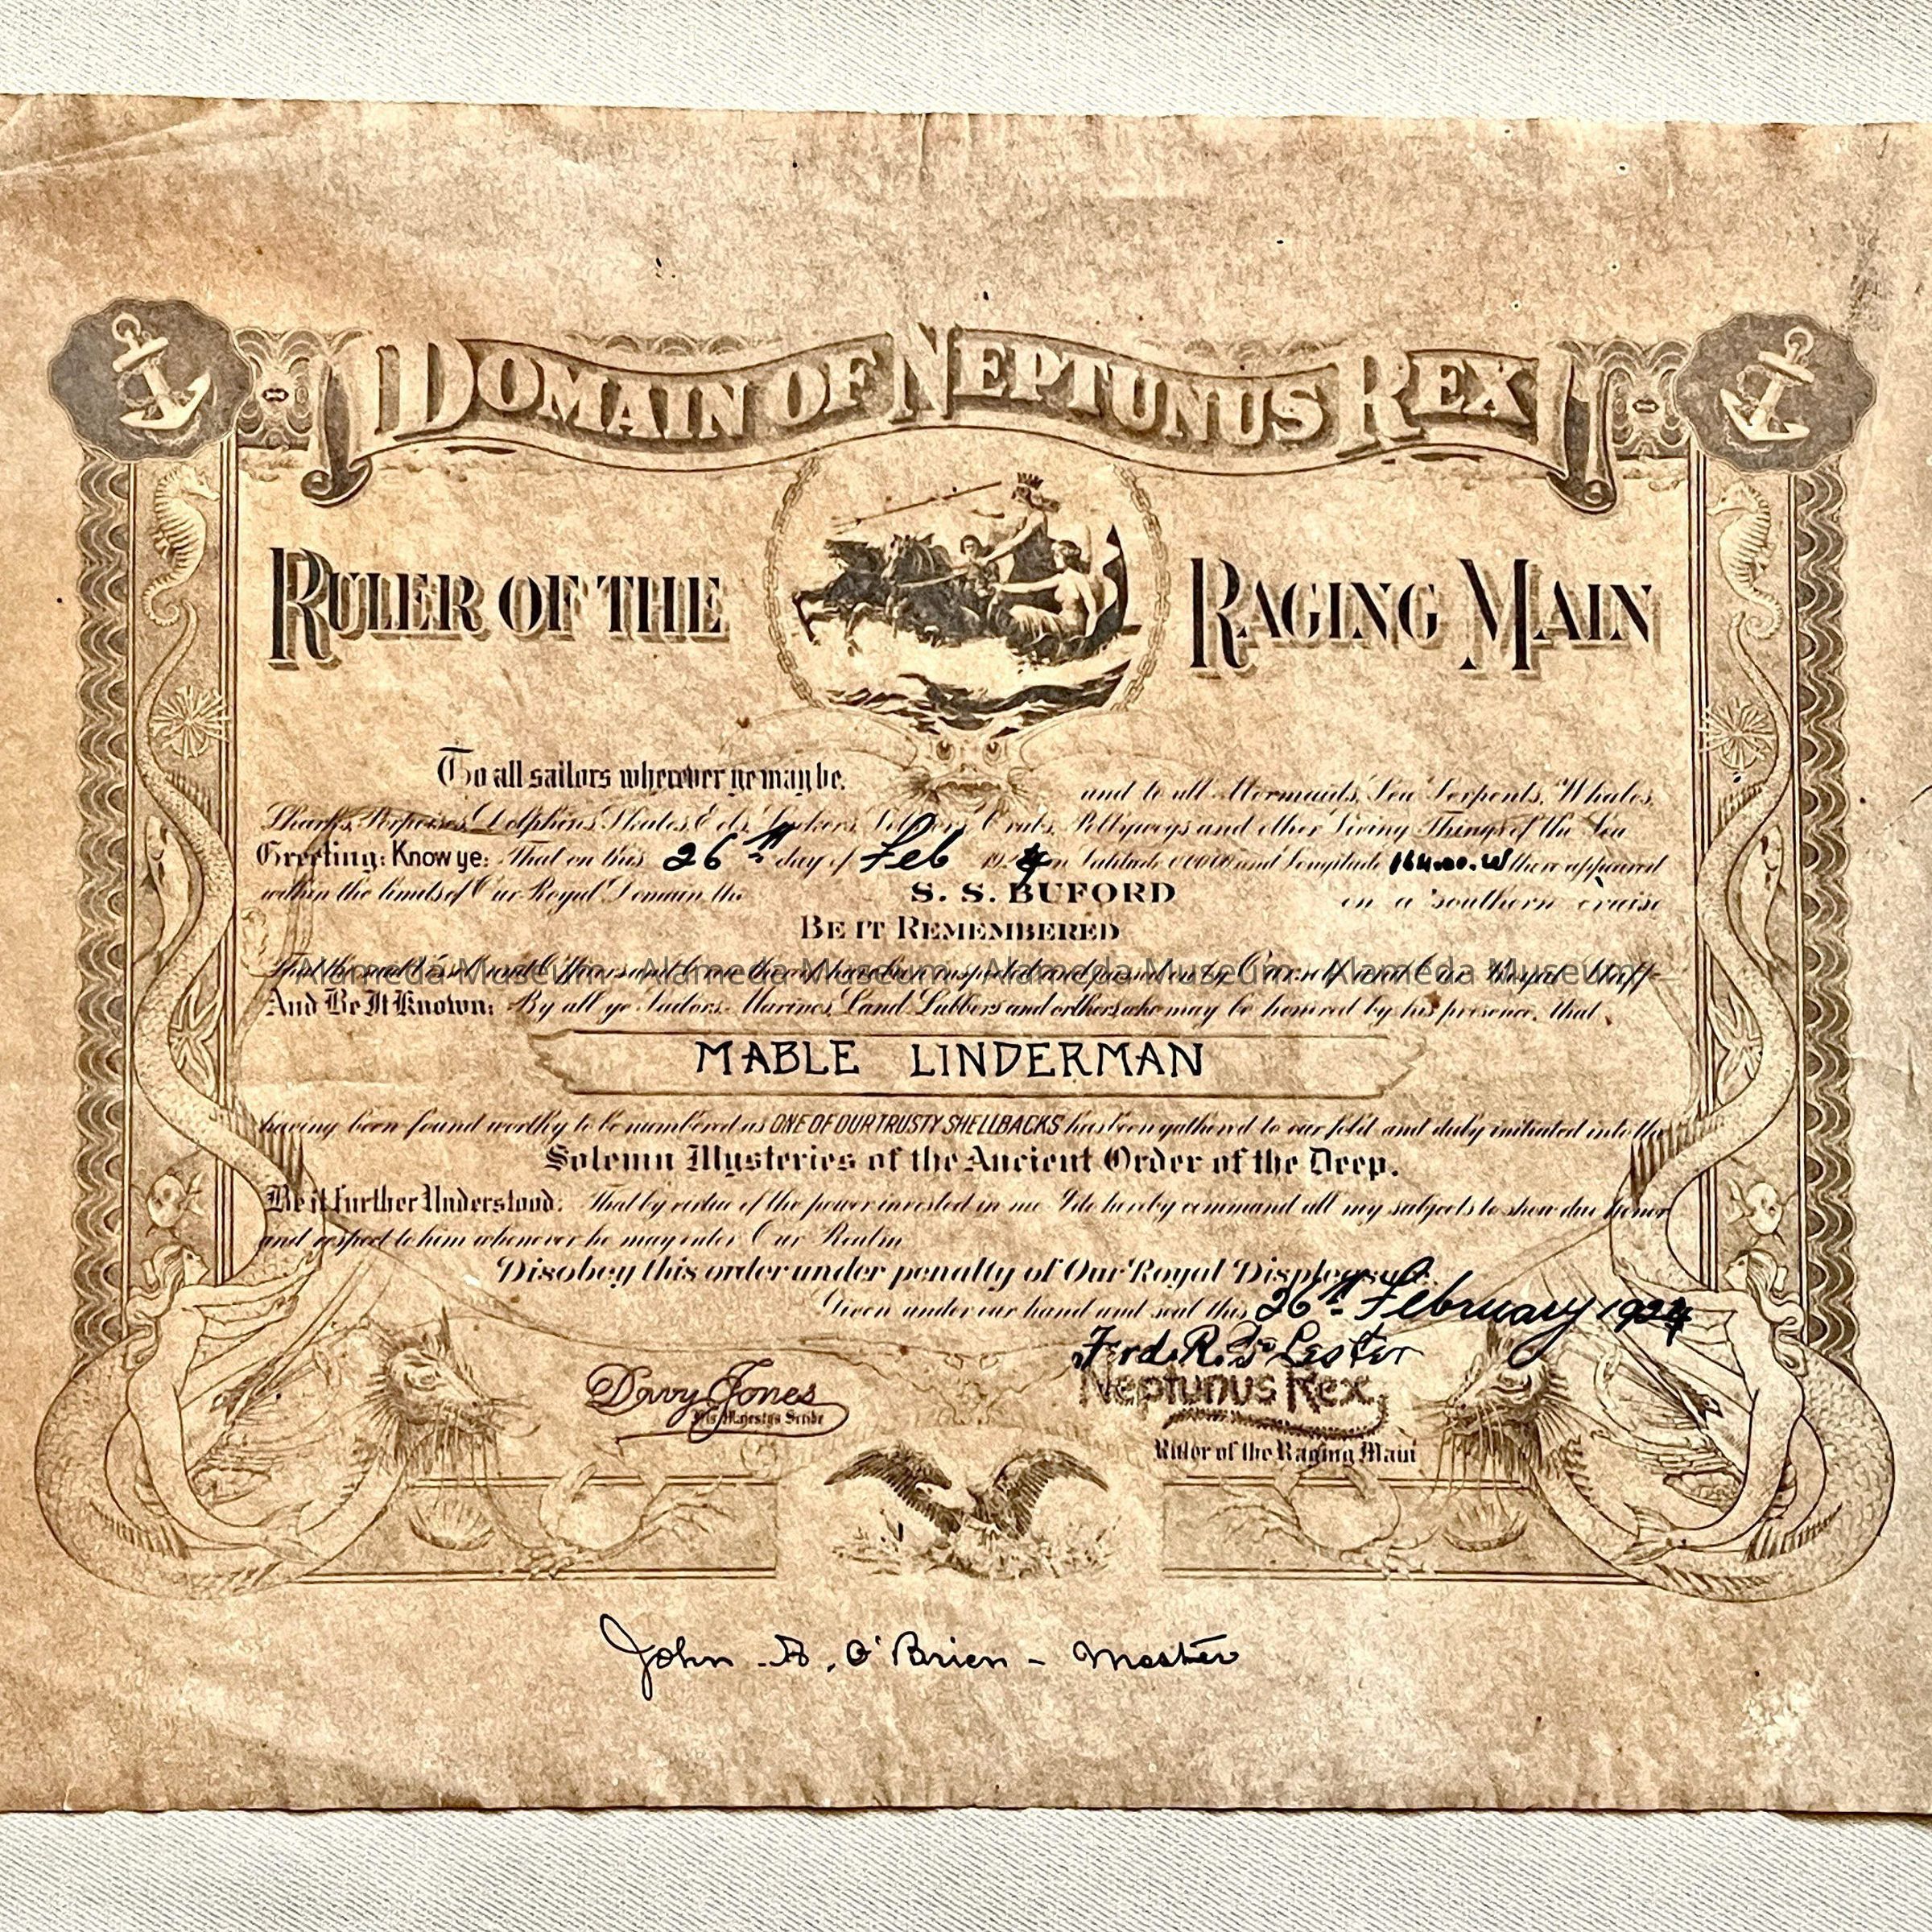 DOMAIN OF NEPTUNUS REX
RULER OF THE RAGING MAIN
To all sailors wherever ye may be. and to all Mermaids, Sea Serpents, Whales,
Sharks, Porpoises, Dolphins, Skates, Eels, Suckers, Crabs, Pollywogs and other Living Things of the Sea
Greeting: Know ye: That on this 26th day of Feb 1924 in Latitude 00000 and Longitude W there appeared
within the limits of Our Royal Domain the S. S. BUFORD on a southern cruise
BE IT REMEMBERED
That the said Vessel and Officers and Crew thereof have been inspected and passed on by Ourself and Our Royal Staff
Alameda Museum - Alameda Museum - Alameda Museum - Alameda Museum -
And Be It Known: By all ye Sailors, Marines, Land Lubbers and orthers who may be honored by his presence, that
MABLE LINDERMAN
having been found worthy to be numbered as ONE OF OUR TRUSTY SHELLBACKS has been gathered to our fold and duly initiated into the
Solemn Mysteries of the Ancient Order of the Deep.
Be it Further Understood: That by virtue of the power invested in me I do hereby command all my subjects to show due honor
and respect to him whenever he may enter Our Realm
Disobey this order under penalty of Our Royal Displeasure.
Given under our hand and seal this 26th February 1924
Davy Jones
His Majestys Scribe
Lester
Neptunus Rex
Ruler of the Raging Main
John A. O'Brien - Master